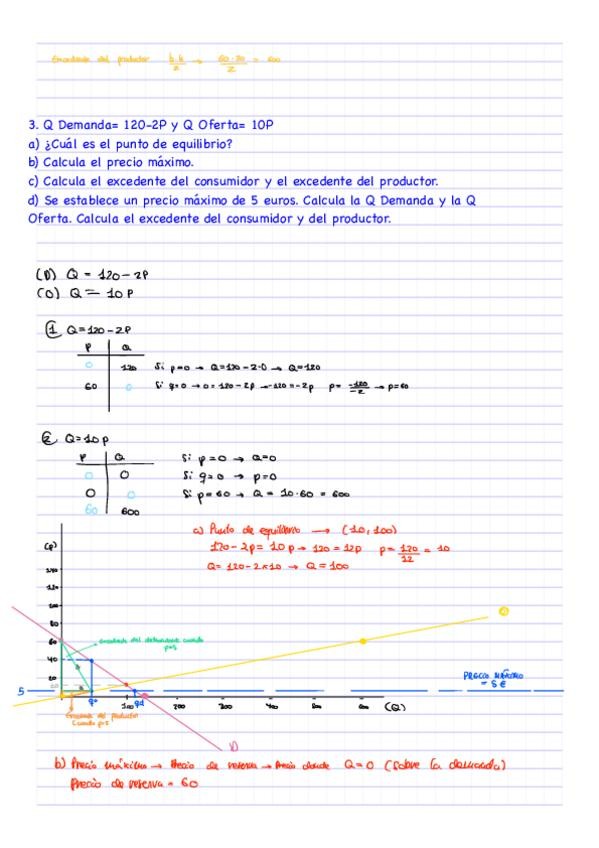 Excedente del productor b·h/2 → 60·20/2 = 600
3. Q Demanda= 120-2P y Q Oferta= 10P
a) ¿Cuál es el punto de equilibrio?
b) Calcula el precio máximo.
c) Calcula el excedente del consumidor y el excedente del productor.
d) Se establece un precio máximo de 5 euros. Calcula la Q Demanda y la Q
Oferta. Calcula el excedente del consumidor y del productor.
(D) Q = 120-2P
(O) Q = 10P
① Q=120-2P
P Q
0 120 Si p=0 → Q=120-2·0 → Q=120
60 0 Si q=0 → 0=120-2p → -120=-2p p= -120/-2 → p=60
② Q=10p
P Q Si p=0 → Q=0
0 0 Si q=0 → p=0
0 0 Si p=60 → Q = 10·60 = 600
60 600
a) Punto de equilibrio → (10,100)
120-2p= 10p → 120=12p p= 120/12 = 10
Q= 120-2×10 → Q=100
(P)
120
100
80
60
Excedente del demandante cuando
p=5
40
20
O
PRECIO MÁXIMO
= 5€
5
qo qd
100 200 300 400 500 600 (Q)
Excedente del productor
cuando p=5
D
b) Precio máximo → Precio de reserva → Precio donde Q=0 (sobre la demanda)
Precio de reserva = 60